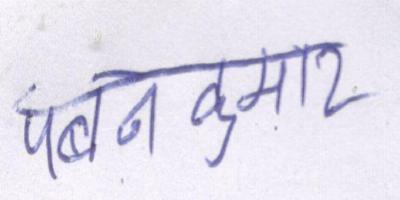 पबन कुमार